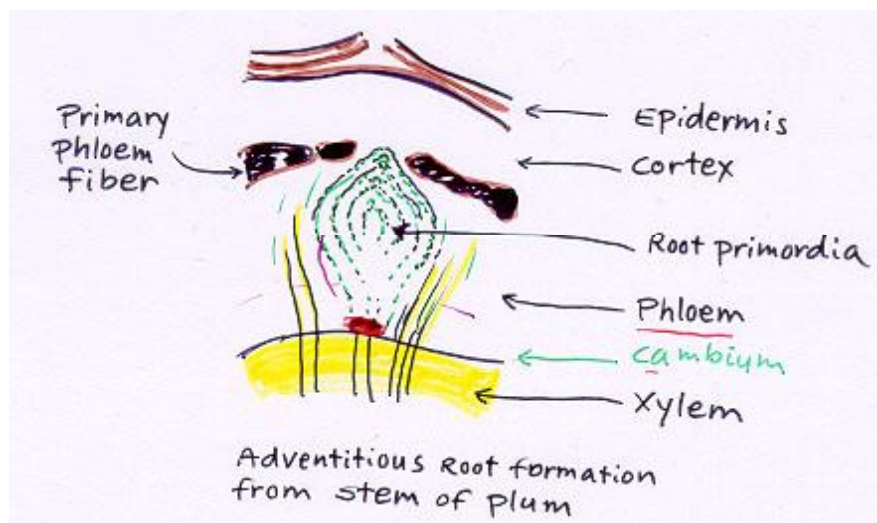 Primary
Phloem
fiber
Epidermis
Cortex
Root primordia
Phloem
Cambium
Xylem
Adventitious Root formation
from stem of plum